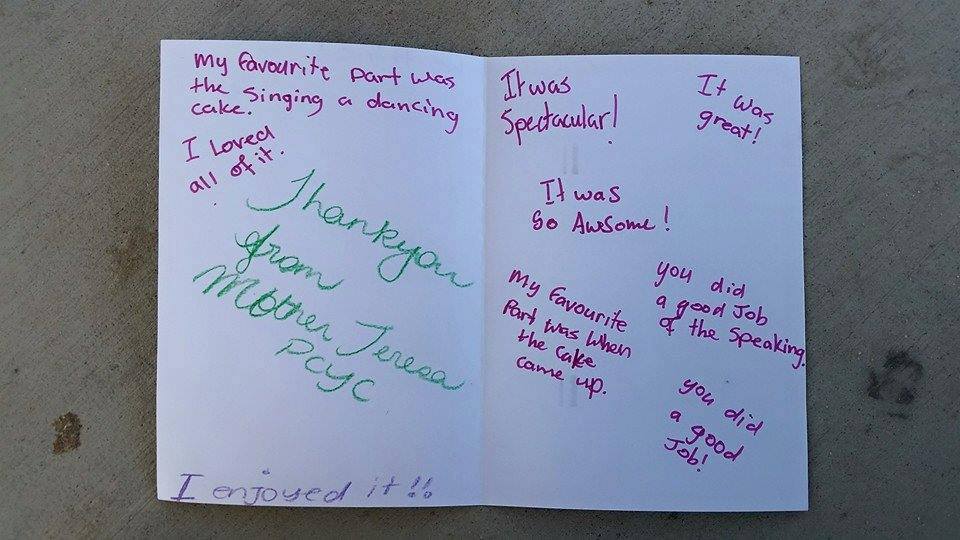 My favourite part was
the singing a dancing
cake.
I Loved
all of it.
Thankyou
from
Mother Teresa
PCYC
I enjoyed it!!
It was
Spectacular!
It was
great!
It was
so Awsome!
My favourite
Part was when
the cake
came up.
you did
a good Job
of the Speaking.
you did
a good
Job!